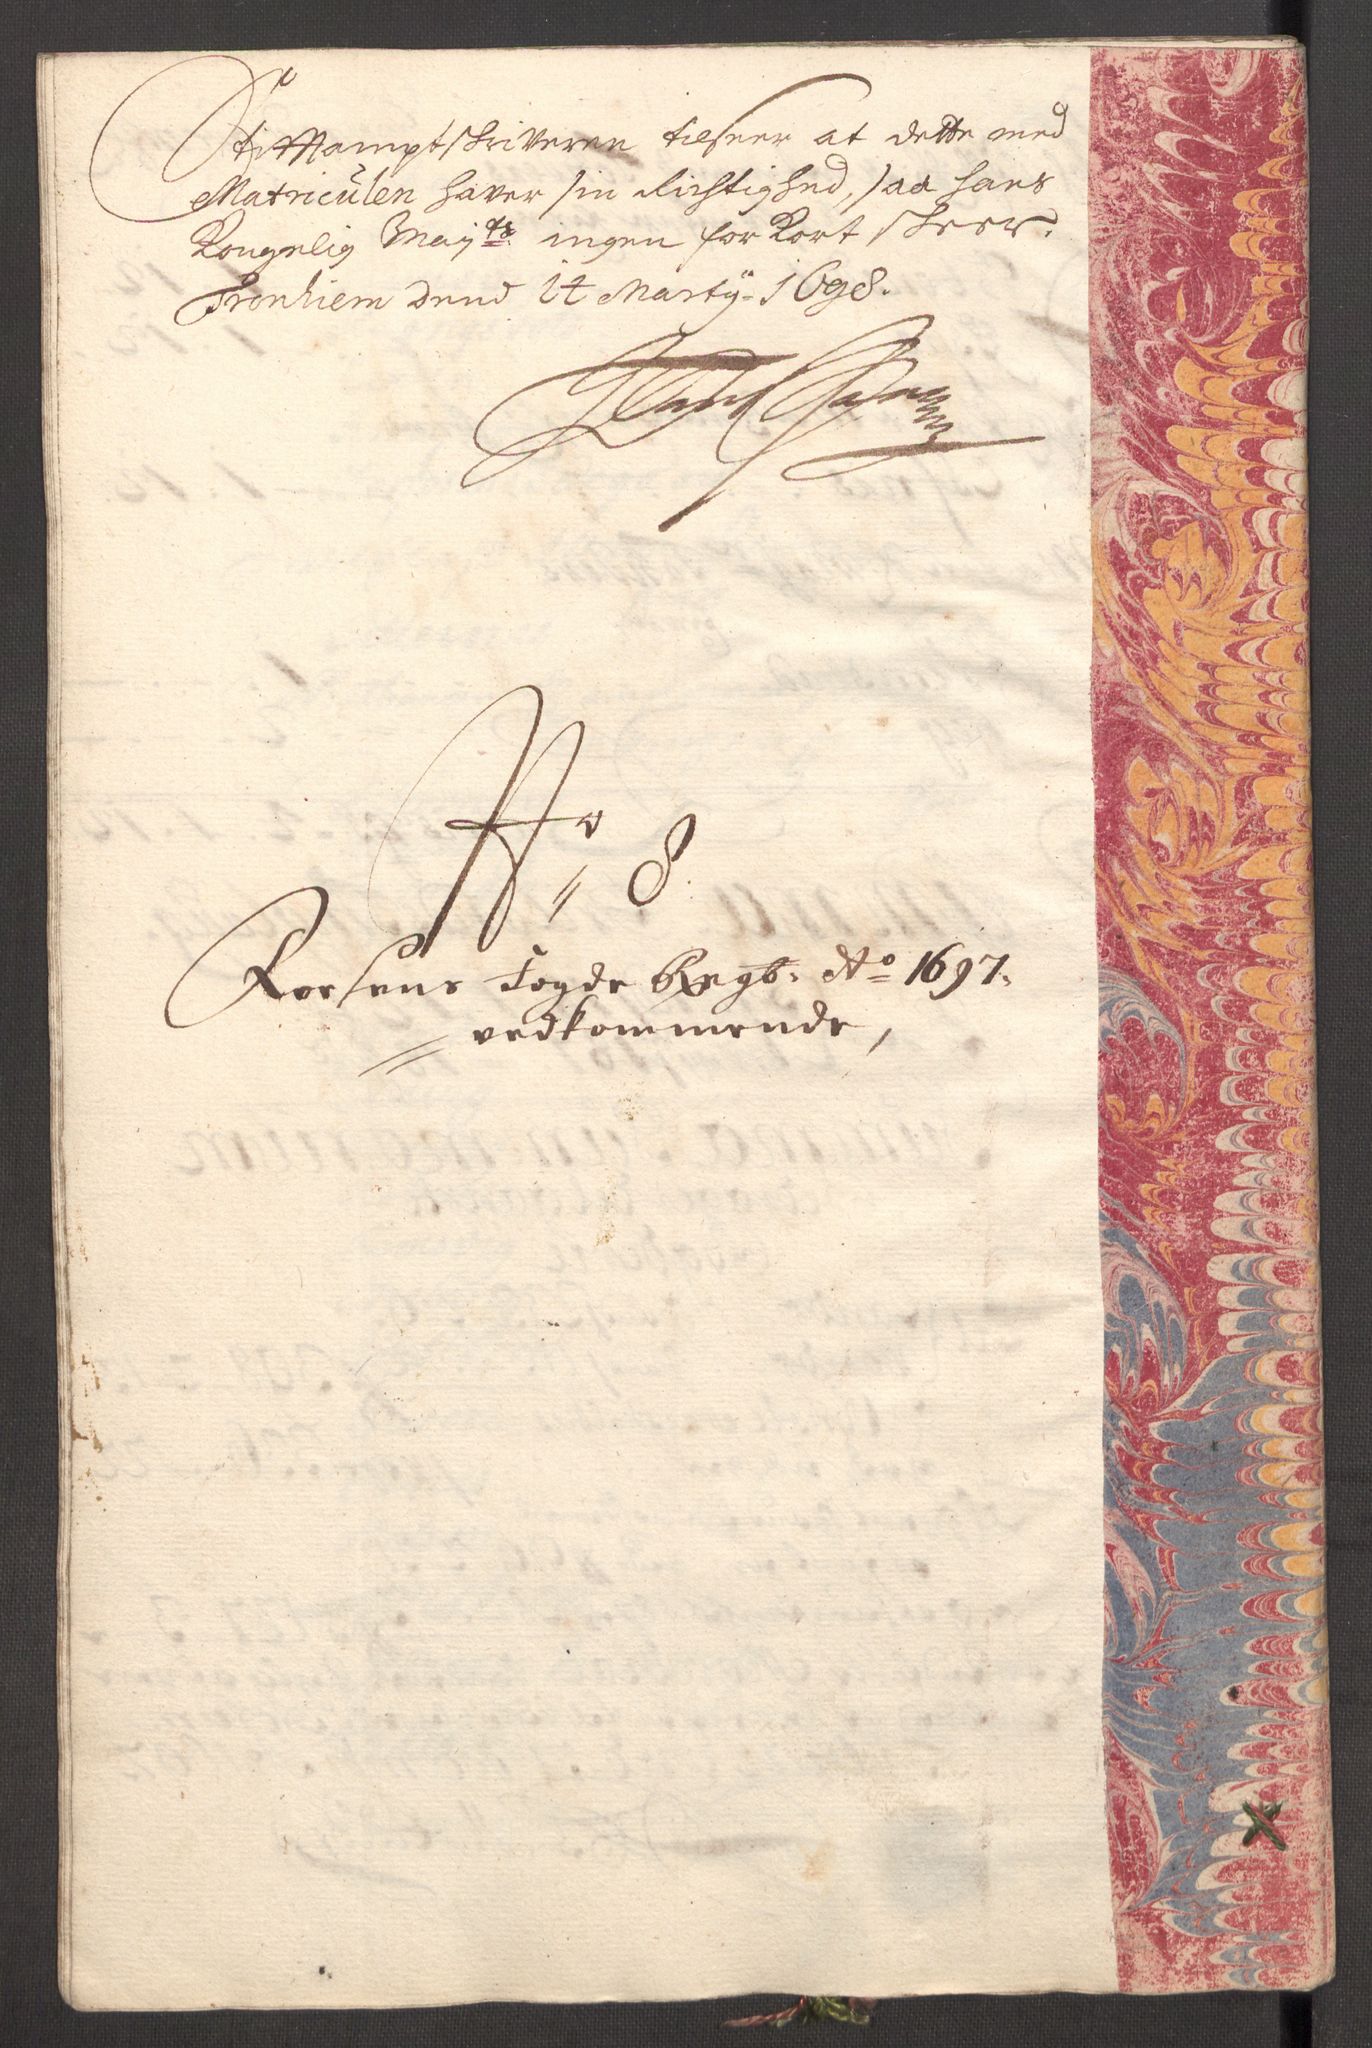 Stifftamptskriveren tilseer at dette med
Matriculen haver sin Rictighed, saa hans
Kongelig Mayts. ingen forkort skeer.
Tronhiem dend 14 Marty 1698.
No 8
Fosens Fogde Regb. Ao 1697.
vedkommende,